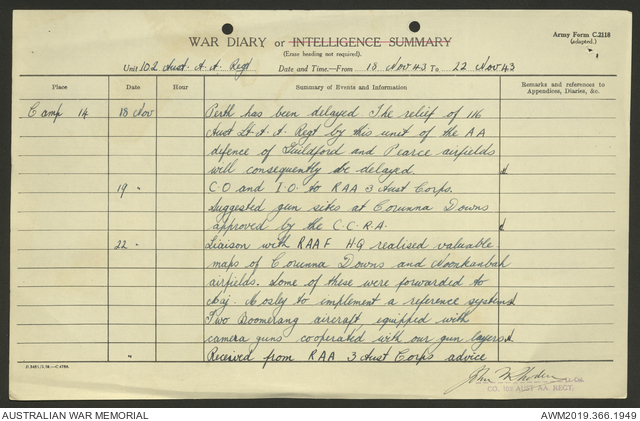 WAR DIARY or INTELLIGENCE SUMMARY
(Erase heading not required).
Army Form C.2118
(adapted.)
Unit 102 Aust. A. A. Regt Date and Time.—From 18 Nov 43 To 22 Nov 43
Place Date Hour Summary of Events and Information Remarks and references to Appendices, Diaries, &c.
Camp 14 18 Nov Perth has been delayed The relief of 116
Aust Lt. A. A. Regt by this unit of the AA
defence of Guildford and Pearce airfields
will consequently be delayed.
19 " C.O and I.O. to RAA 3 Aust Corps.
Suggested gun sites at Corunna Downs
approved by the C.C.R.A.
22 " Liaison with RAAF HQ realised valuable
maps of Corunna Downs and Noonkanbah
airfields. Some of these were forwarded to
Maj. Mosly to implement a reference system
Two Boomerang aircraft equipped with
camera guns cooperated with our gun layers
" Received from RAA 3 Aust Corps advice
CO. 102 AUST AA. REGT.
AUSTRALIAN WAR MEMORIAL AWM2019.366.1949